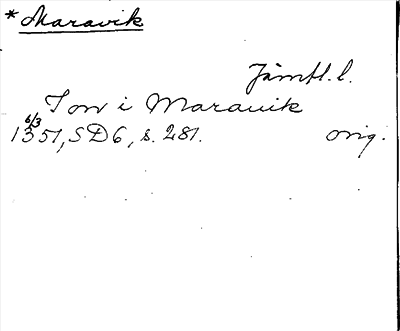 *Maravik
Jämtl. l.
Ion i Maravik
6/3
1351, SD6, s. 281. orig.